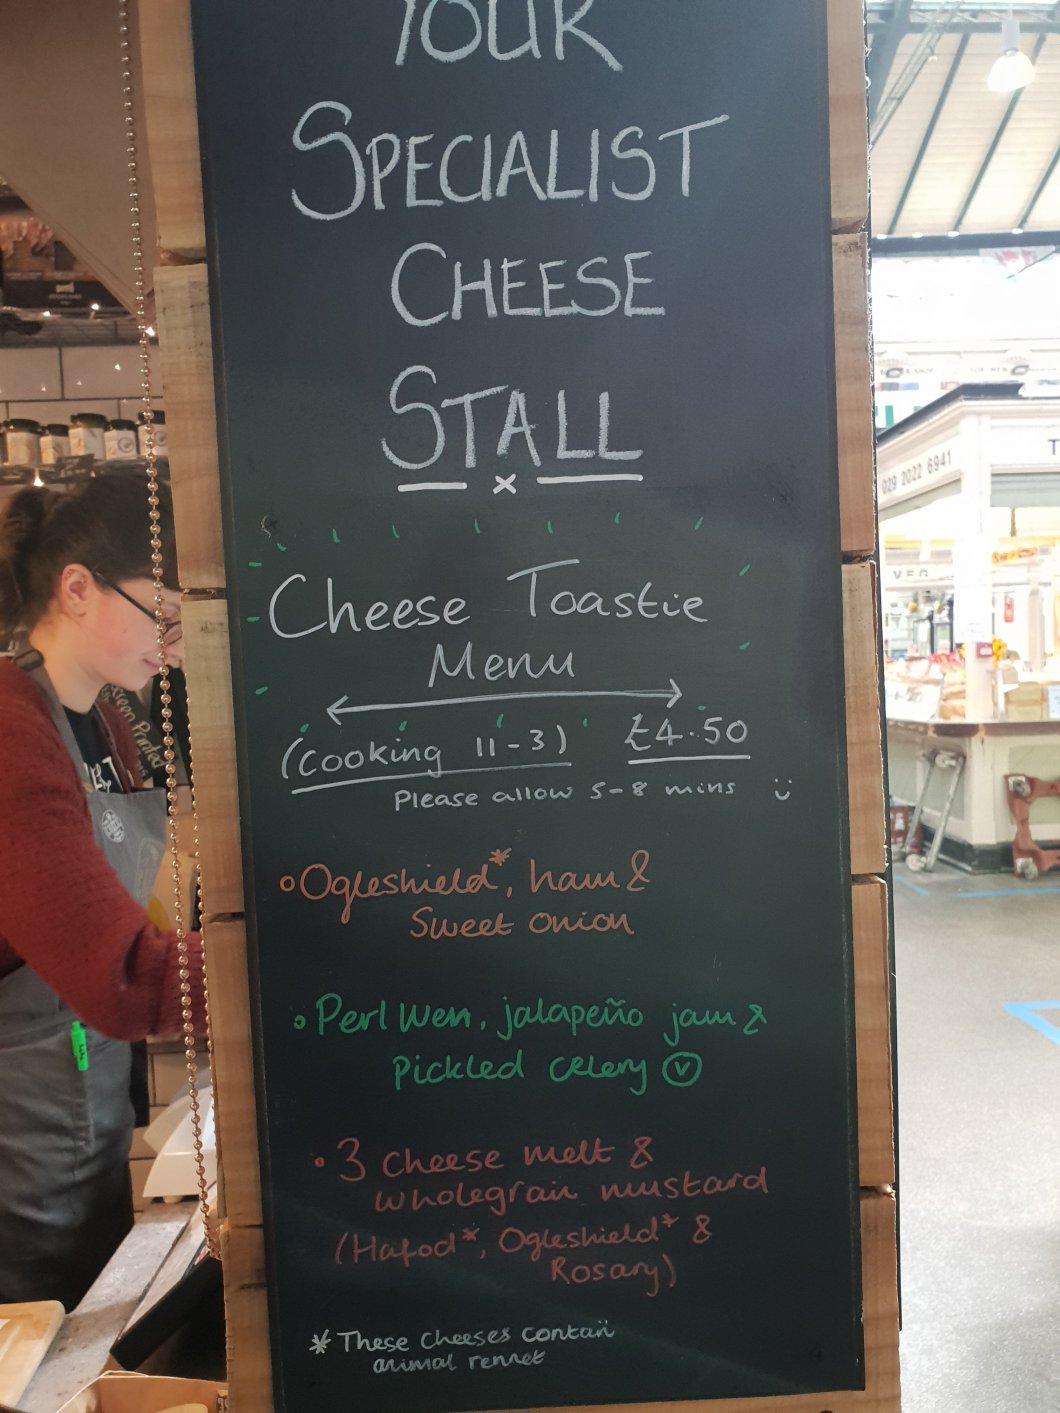 YOUR
SPECIALIST
CHEESE
STALL
x
Cheese Toastie
Menu
(cooking 11-3) £4.50
Please allow 5-8 mins
•Ogleshield*, ham &
Sweet onion
•Perl Wen, jalapeño jam &
Pickled celery Ⓥ
•3 cheese melt &
wholegrain mustard
(Hafod*, Ogleshield* &
Rosary)
* These cheeses contain
animal rennet
029 2022 6941
VEG